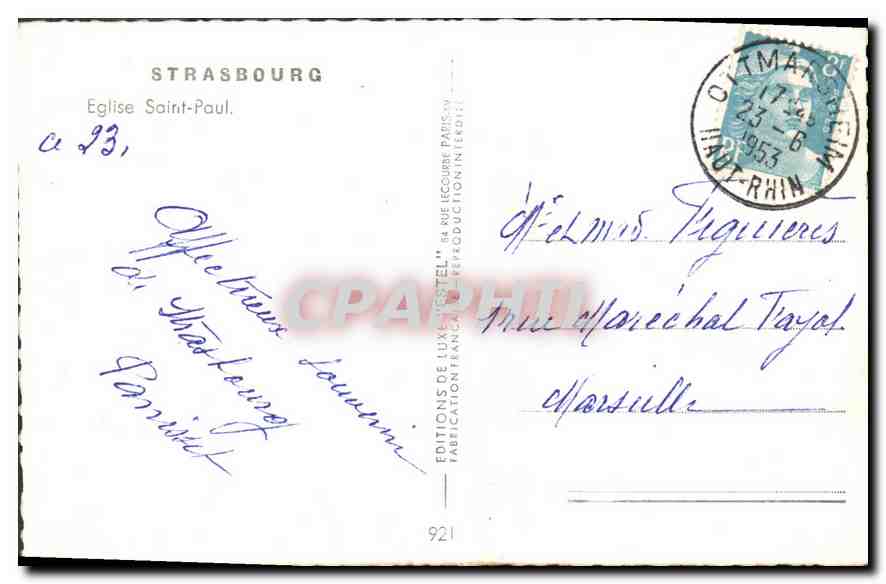 STRASBOURG
Eglise Saint-Paul.
ce 23,
Affectueux souvenir
de Strasbourg
EDITIONS DE LUXE "ESTEL" 84 RUE LECOURBE PARIS-XV
FABRICATION FRANÇAISE - REPRODUCTION INTERDITE
921
CPAPHIL
8F
OTTMARSHEIM
17
23-6
1953
HAUT-RHIN
Mr et Mme Figuieres
rue Maréchal Fayol
Marseille